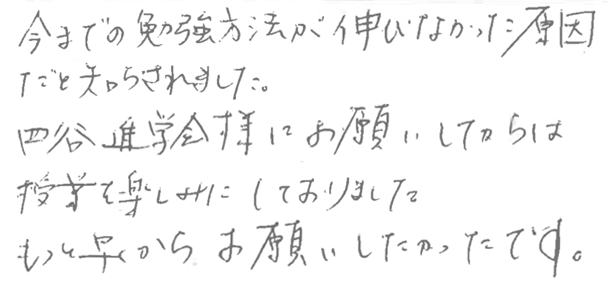 今までの勉強方法が伸びなかった原因
だと知らされました。
四谷進学会様にお願いしてからは
授業を楽しみにしておりました
もっと早くからお願いしたかったです。